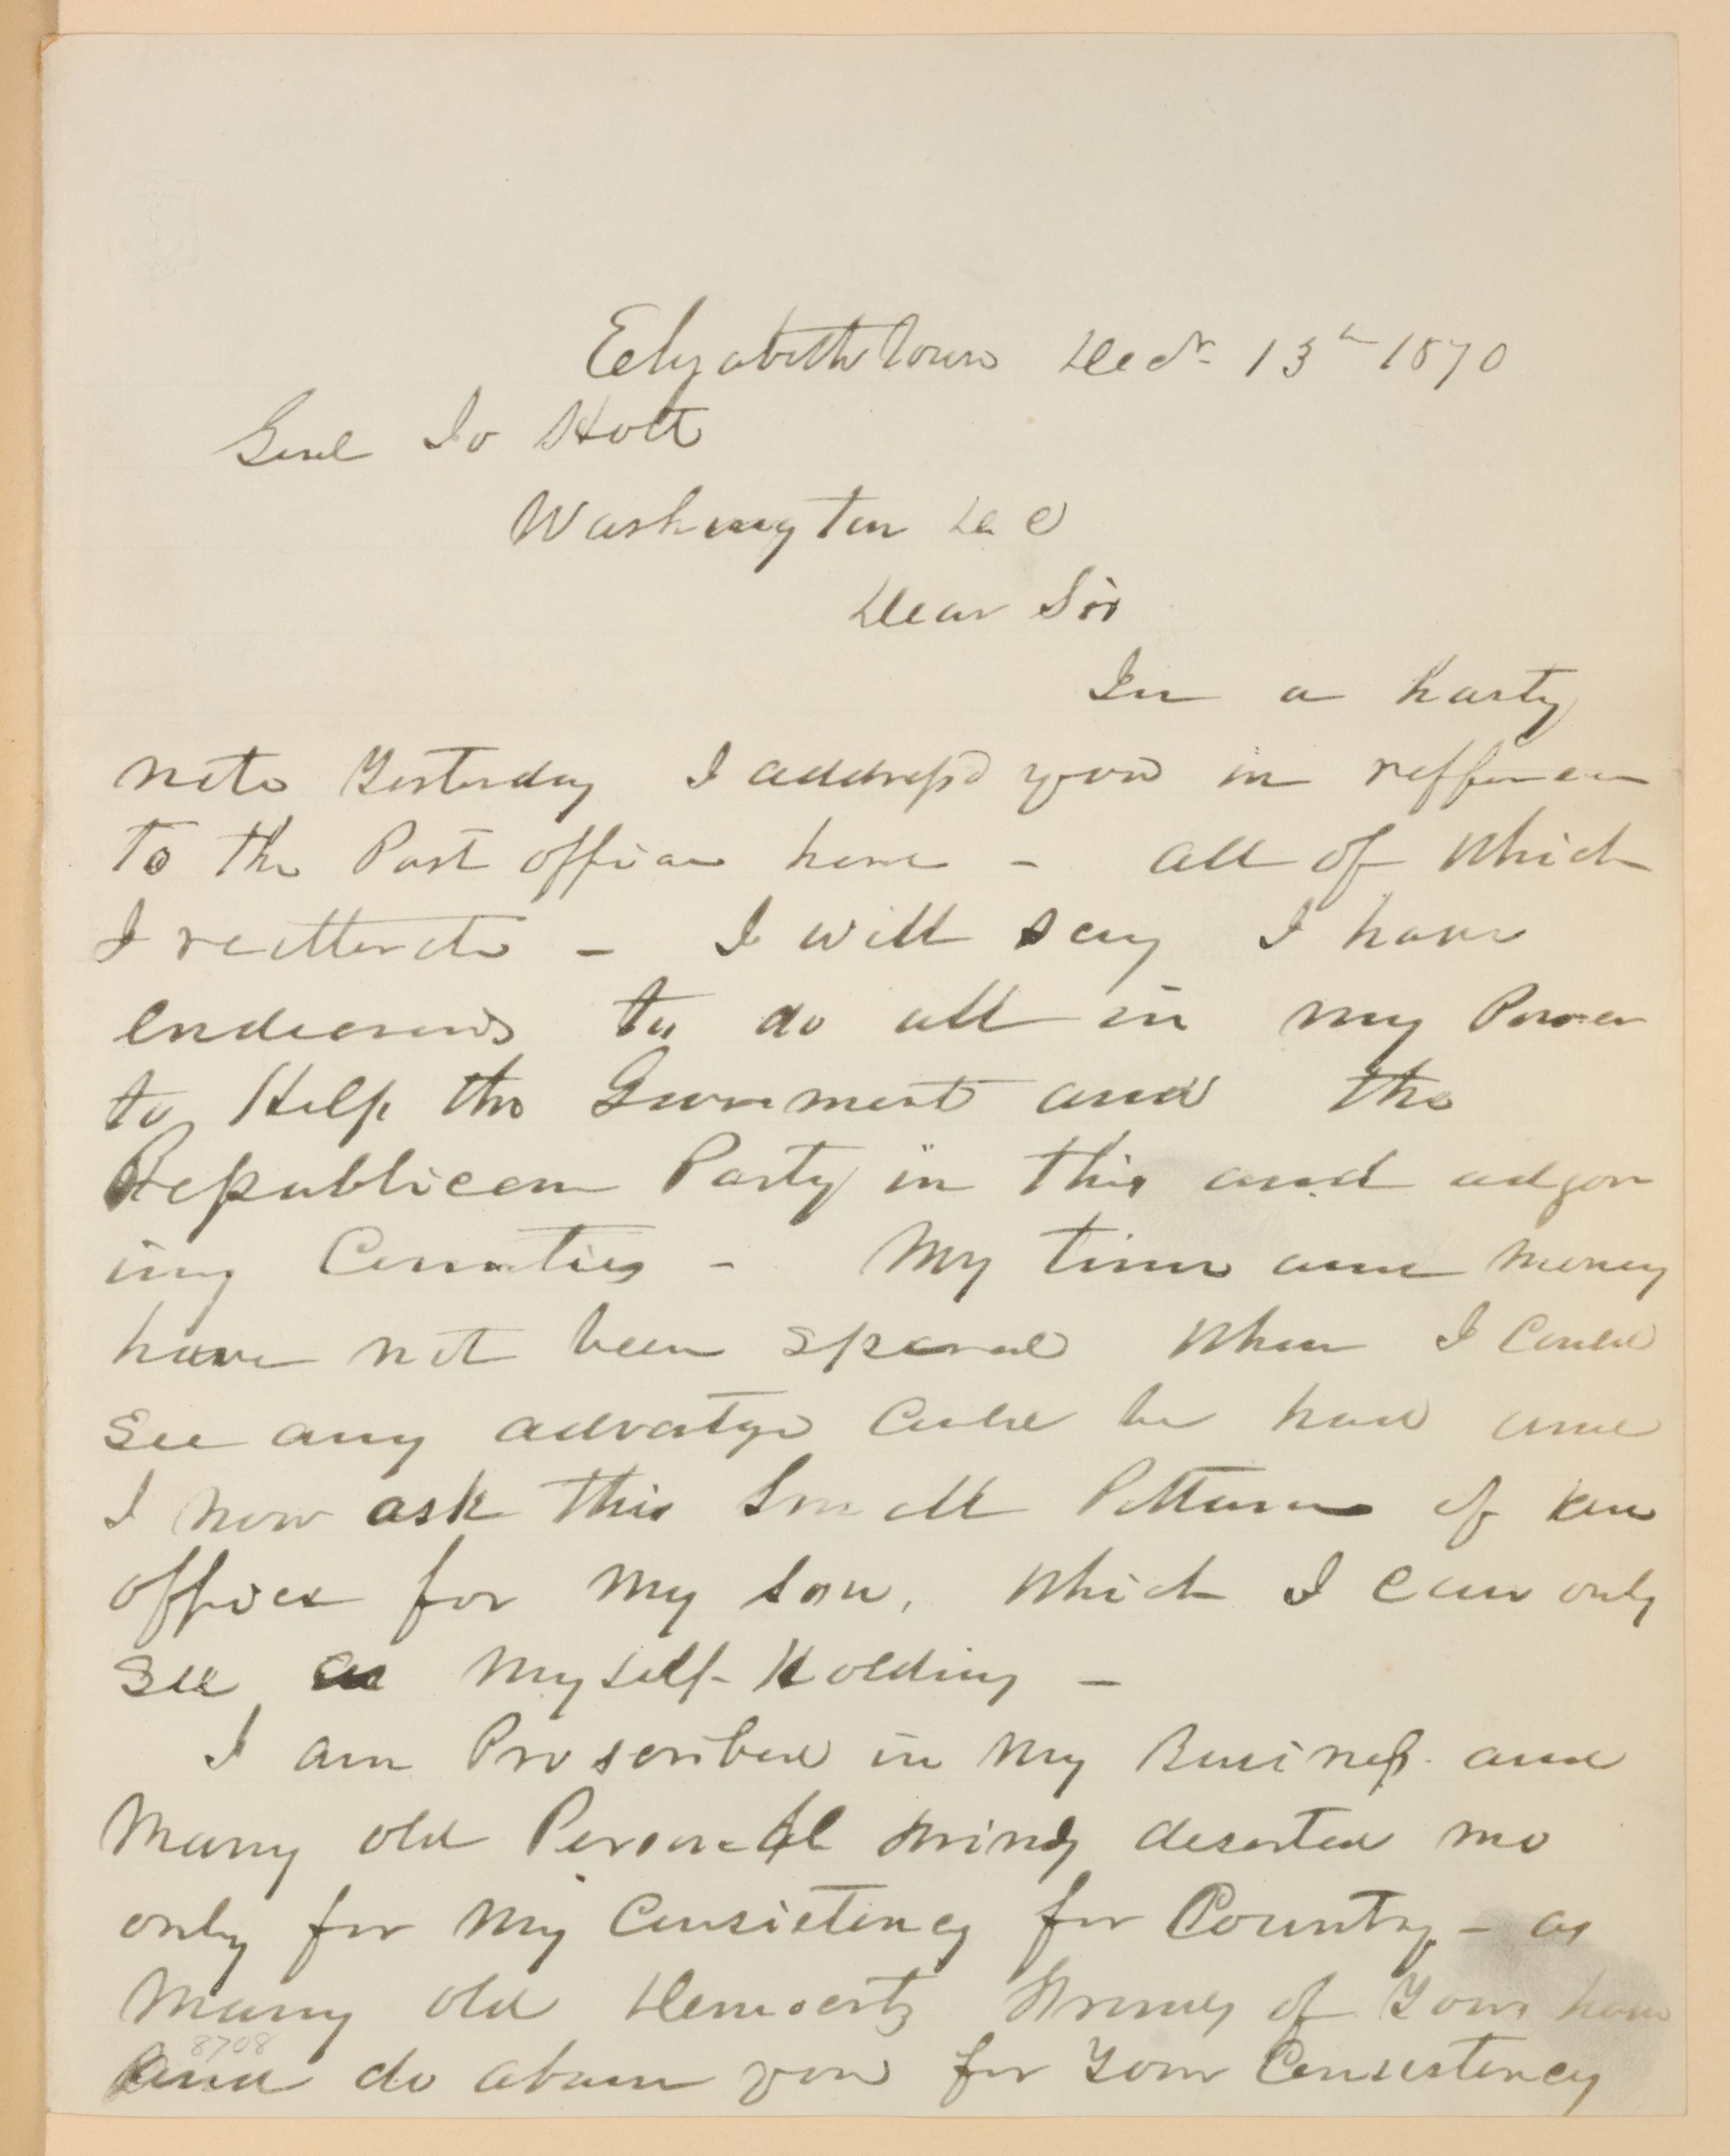 Elizabethtown Decr 13th 1870
Genl Jo Holt
Washington D C
Dear Sir
In a hasty
note Yesterday I address'd you in refference
To the Post office here - all of which
I reitterate - I will say I have
endeavored to do all in my Power
to Help the Government and the
Republican Party in this and adjoin
ing Counties - My time and money
have not been spared when I Could
see any advatge Could be had and
I now ask this Small of an
office for my son, which I can only
see as myself Holding -
I am Proscribed in my Business and
Many old Personal friends deserted me
only for my Consistency for Country - as
Many old Democrts friends of Yours have
and do abuse you for your Consistency
8708